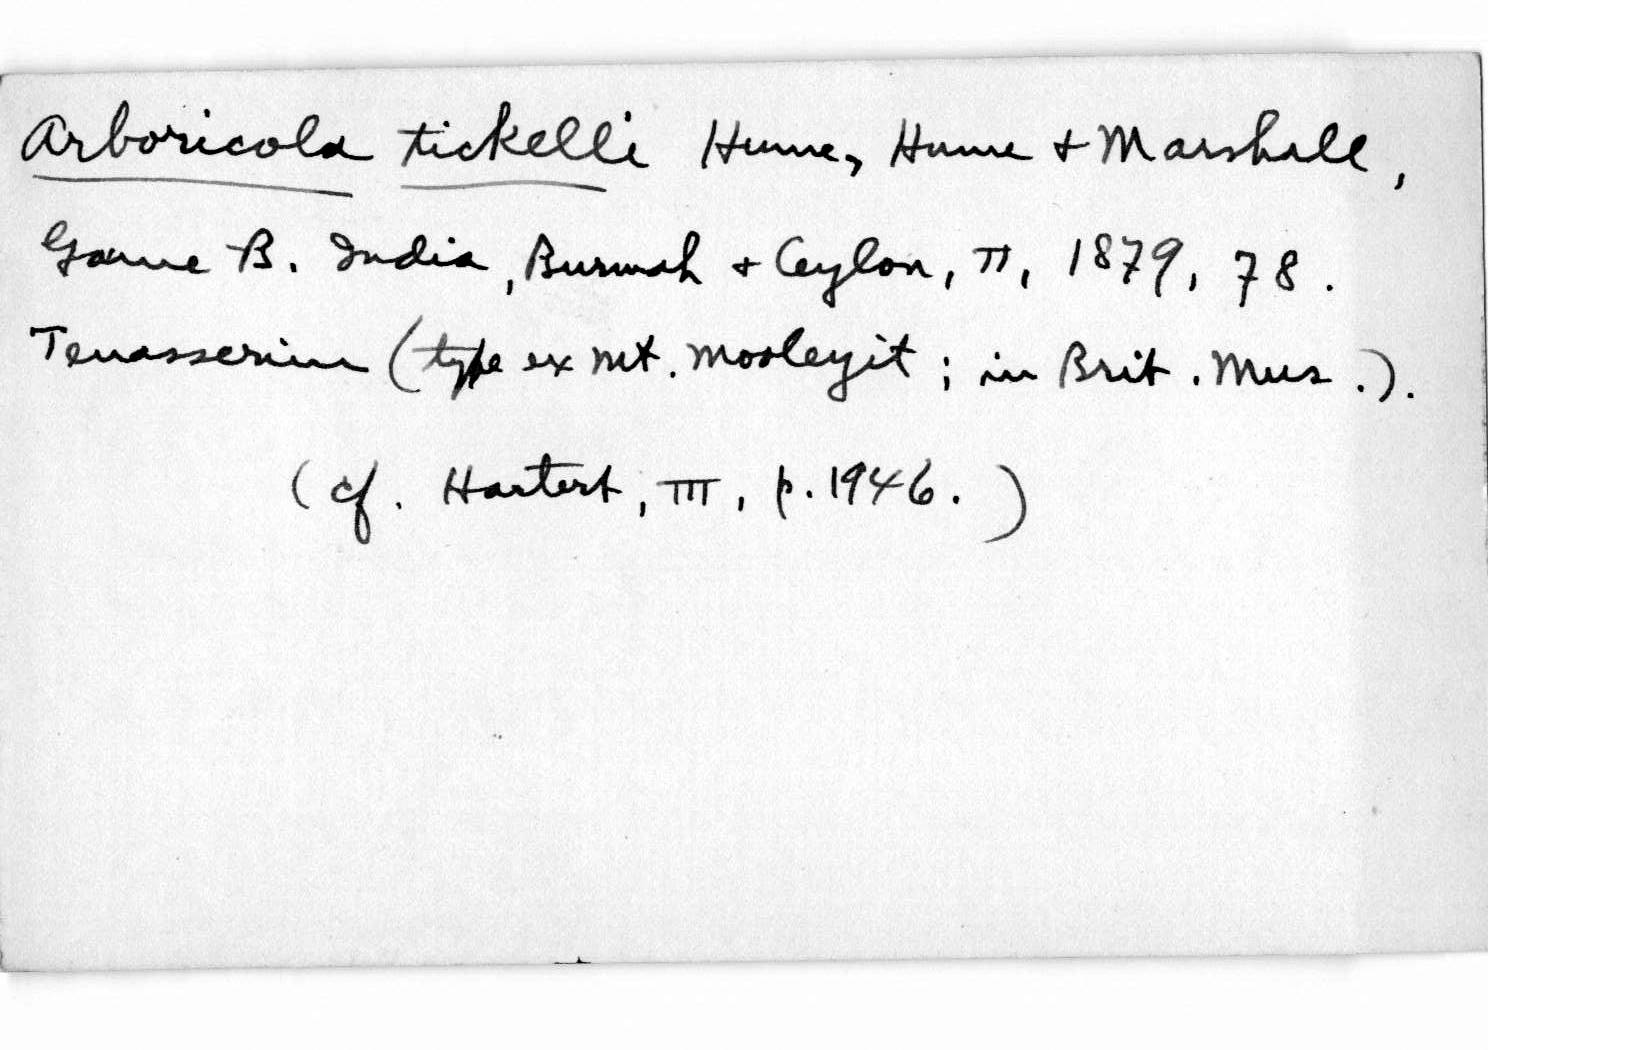 Arboricola tickelli Hume, Hume & Marshall,
Game B. India, Burmah & Ceylon, II, 1879, 78.
Tenasserim (type ex Mt. Mooleyit; in Brit. Mus.).
(cf. Hartert, III, p. 1946.)